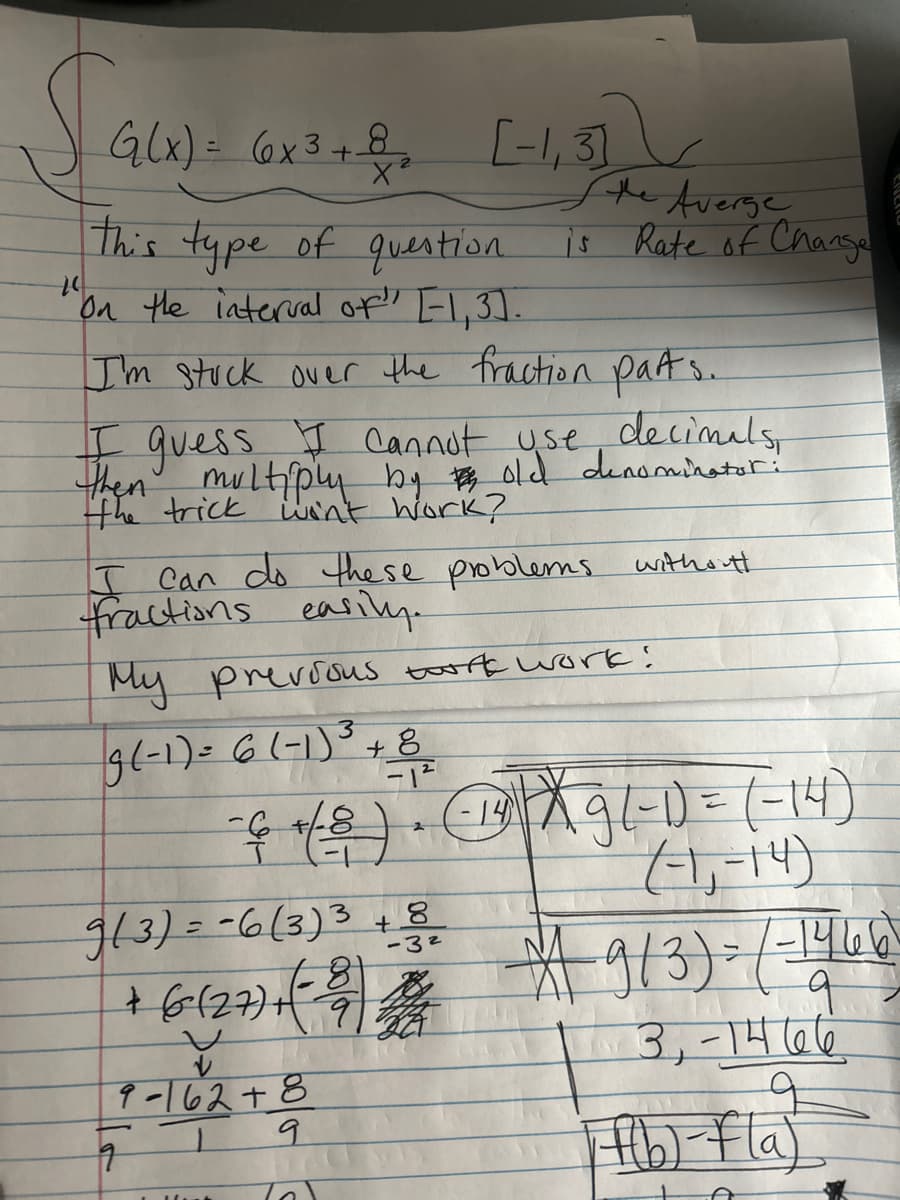 G(x) = 6x3 + 8/x² [-1, 3]
the Averge
this type of question is Rate of Change
"on the interval of" [-1,3].
I'm stuck over the fraction parts.
I guess I cannot use decimals,
then multiply by old denominator:
the trick won't work?
I can do these problems withoutt
fractions easily.
My previous work:
g(-1) = 6(-1)³ + 8/-1²
-6/1 + (-8/-1) = -14
g(-1) = (-14)
(-1, -14)
g(3) = -6(3)3 + 8/-3²
+ 6(27) + (-8/9)
9/9 -162/1 + 8/9
g(3) = (-1466/9)
3, -1466/9
f(b)-f(a)